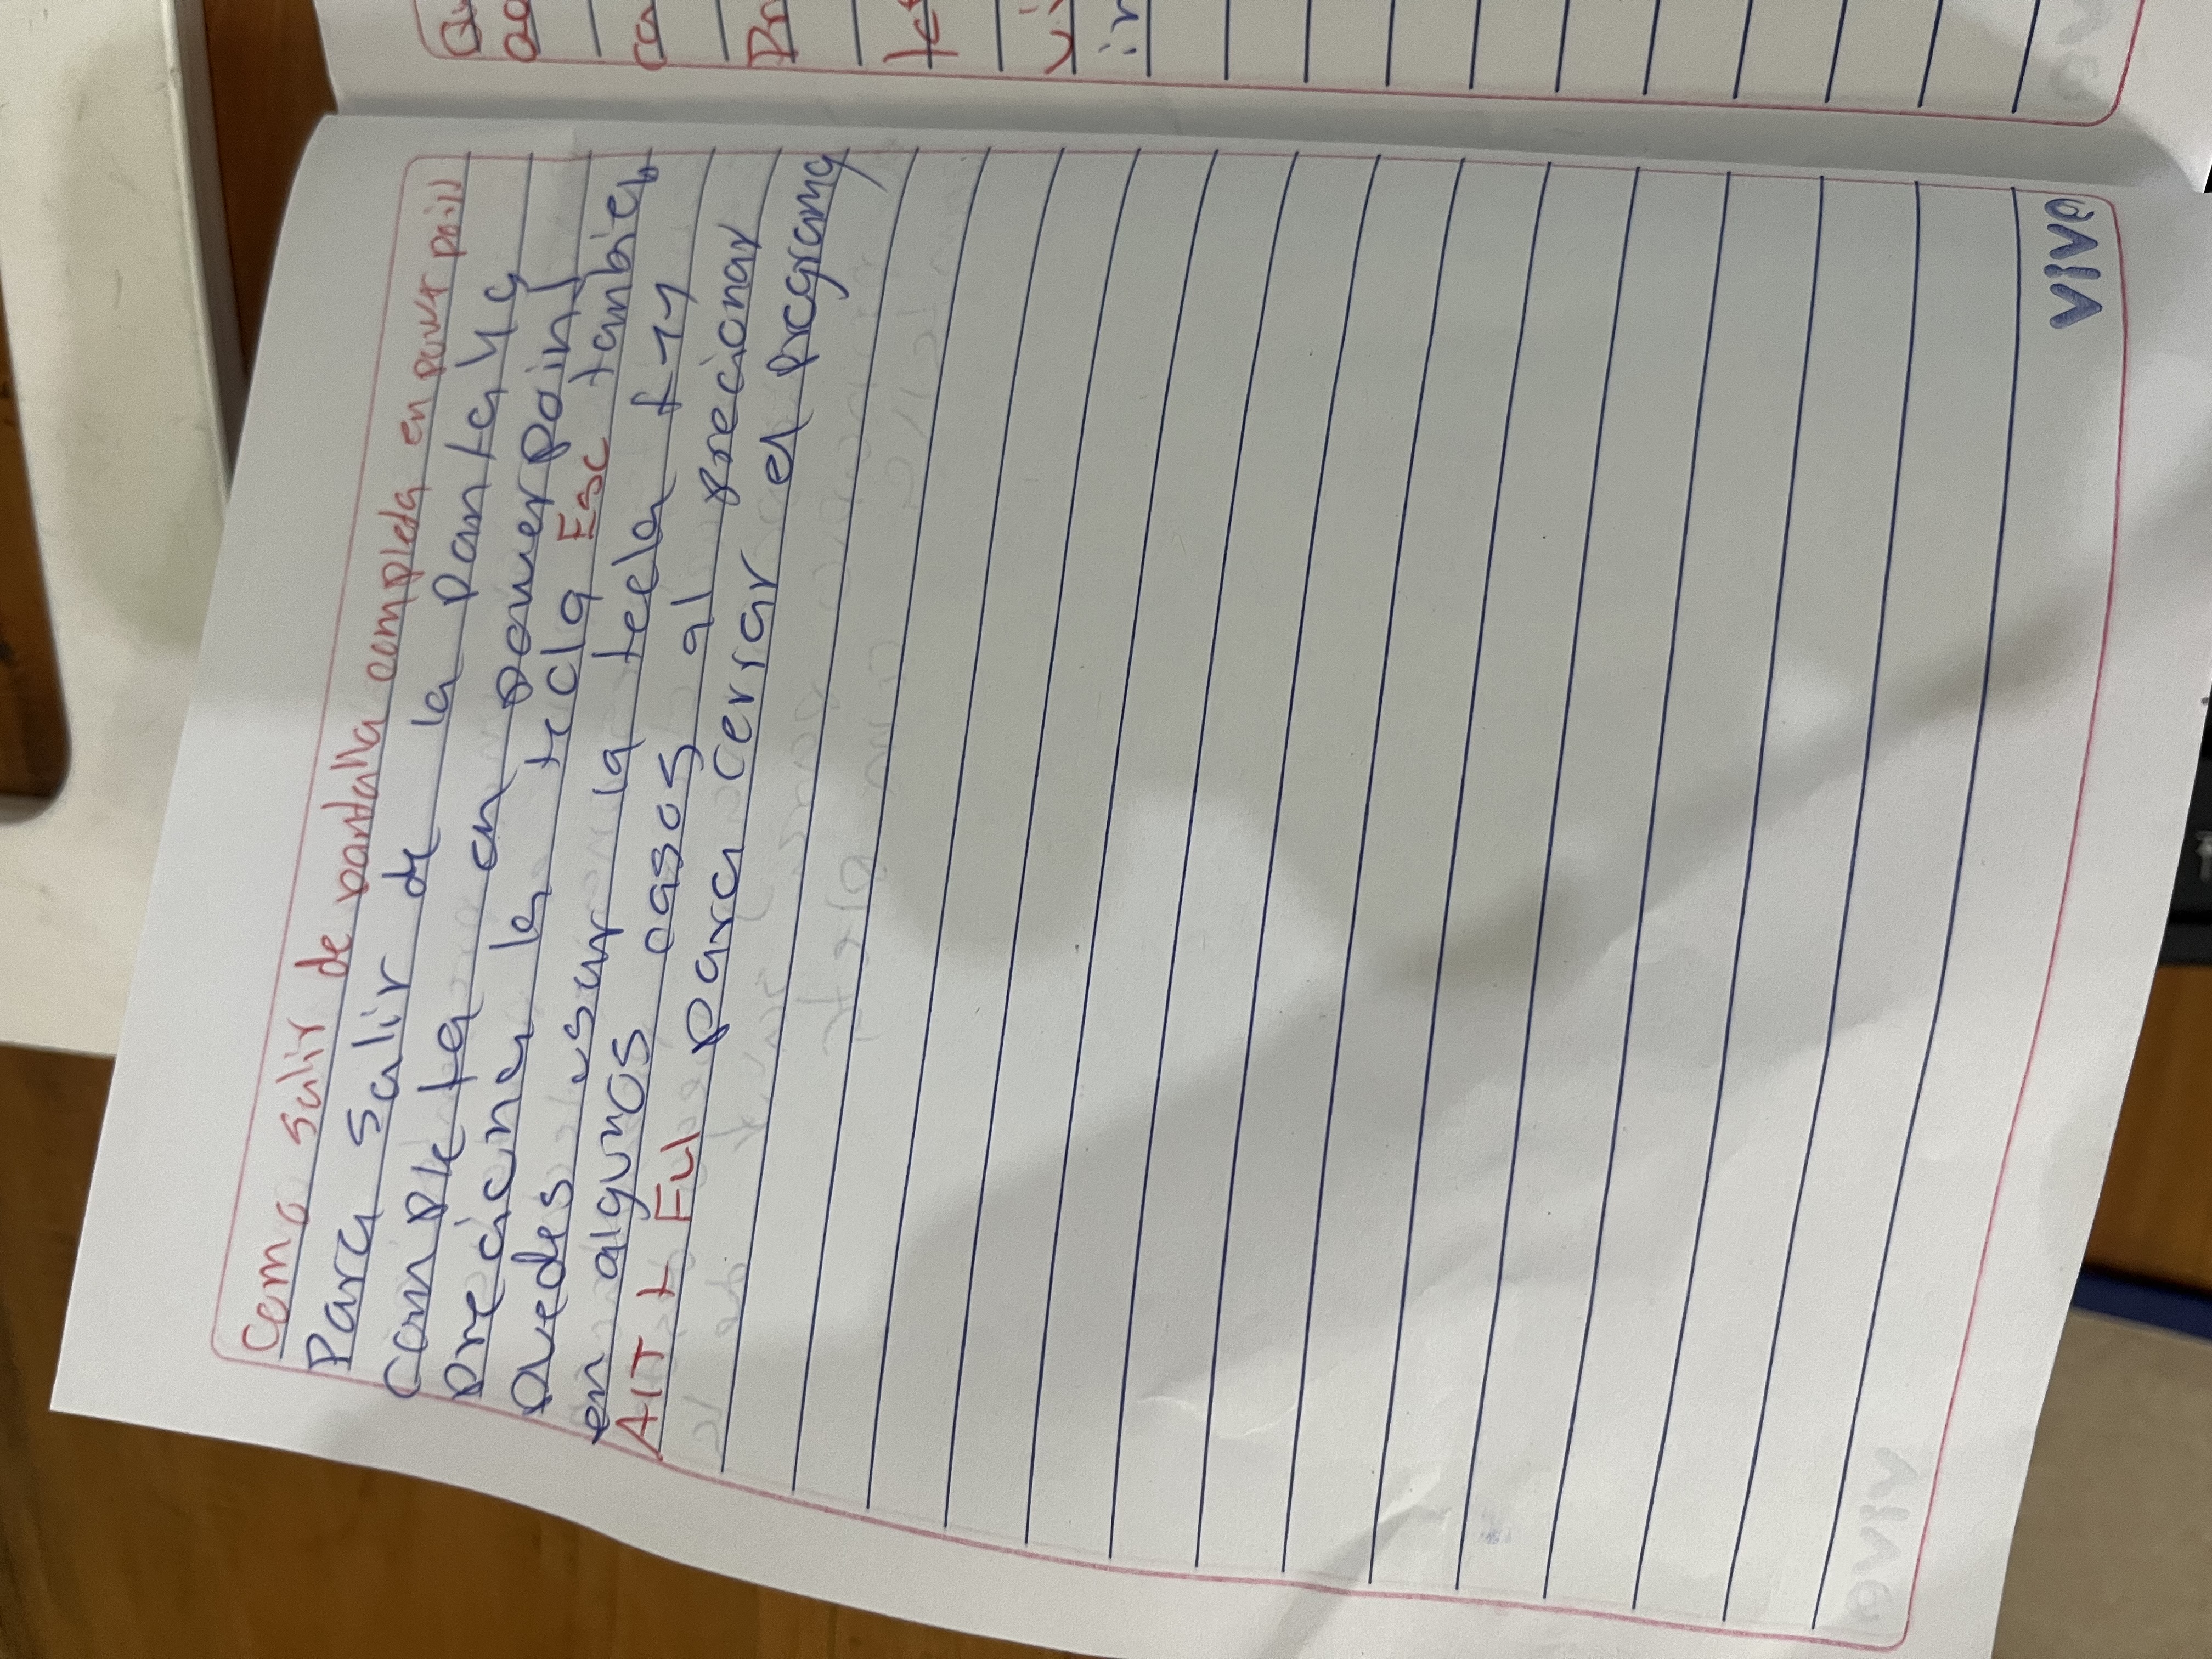 Como salir de pantalla completa en power poin
Para salir de la pantalla
completa en powerpoint
precionar la tecla Esc tambien
puedes usar la tecla f11
en algunos casos al precionar
Alt + Fu para cerrar el programa
VIVO